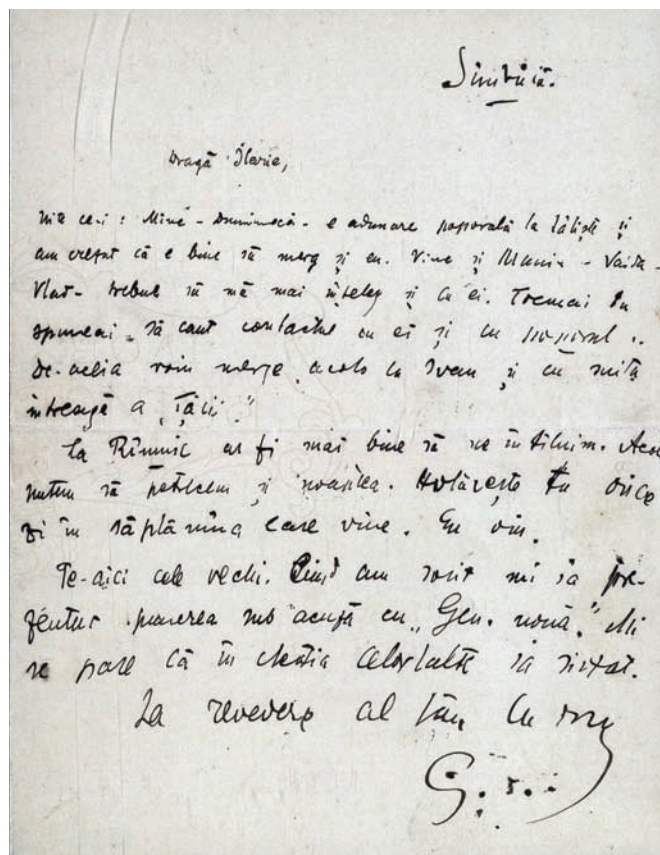 Sîmbătă.
Dragă Ilarie,
Uite ce-i: Mîne - Duminecă - e adunare poporală la Săliște și
am crezut că e bine să merg și eu. Vine și Maniu - Vaida -
Vlad - trebue să mă mai înțeleg și cu ei. Tocmai tu
spuneai să caut contactul cu ei și cu poporul ..
de-aceia voiu merge acolo cu Ivan și cu suita
întreagă a „Țării."
La Rîmnic ar fi mai bine să ne întîlnim. Acolo
putem să petrecem și noaptea. Hotărește tu orice
zi în săptămîna care vine. Eu viu.
Pe-aici cele vechi. Cînd am sosit mi s'a pre-
zentat punerea sub acuză cu „Gen. nouă." Mi
se pare că în chestia celorlalte s'a sistat.
La revedere al tău cu drag